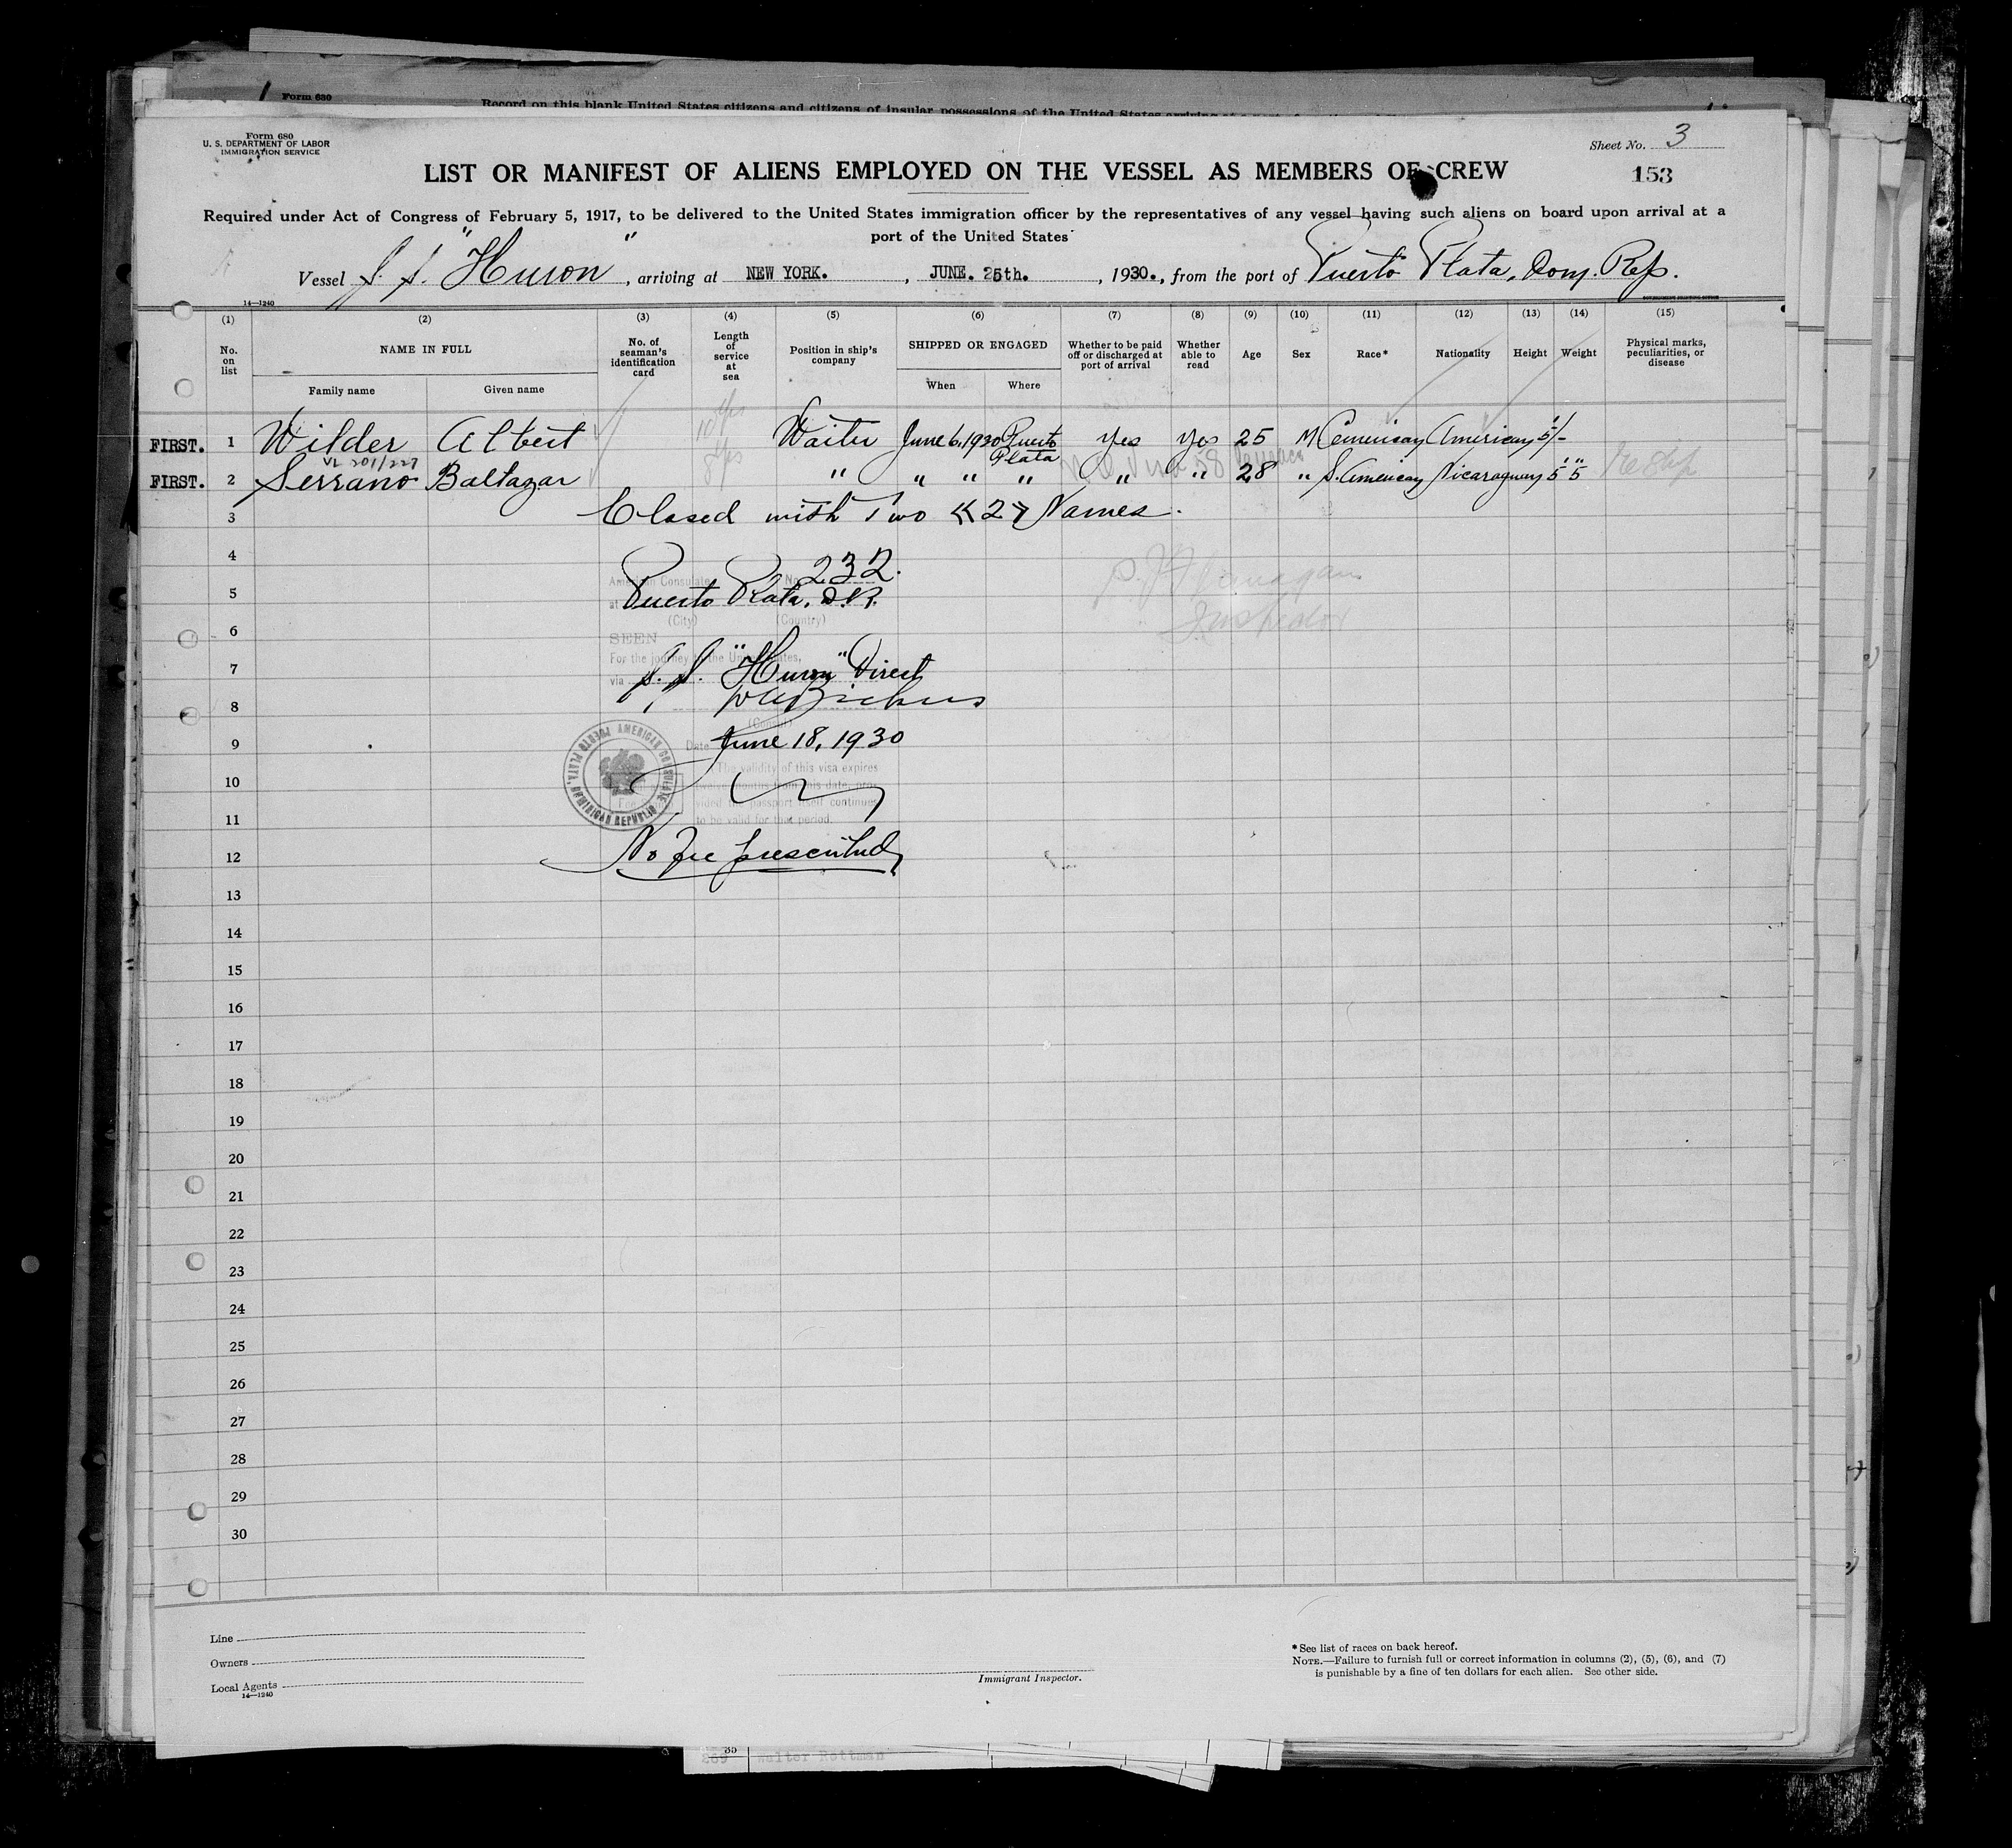 Form 680
Record on this blank United States citizens and citizens of insular possessions of the United States
Form 680
U. S. DEPARTMENT OF LABOR
IMMIGRATION SERVICE
Sheet No. 3
153
LIST OR MANIFEST OF ALIENS EMPLOYED ON THE VESSEL AS MEMBERS OF CREW
Required under Act of Congress of February 5, 1917, to be delivered to the United States immigration officer by the representatives of any vessel having such aliens on board upon arrival at a
port of the United States
Vessel S. S. "Huron", arriving at NEW YORK., JUNE. 25th., 1930., from the port of Puerto Plata, Dom. Rep.
14—1240
(1) (2) (3) (4) (5) (6) (7) (8) (9) (10) (11) (12) (13) (14) (15)
No. on list
NAME IN FULL
Family name Given name
No. of seaman's identification card
Length of service at sea
Position in ship's company
SHIPPED OR ENGAGED
When Where
Whether to be paid off or discharged at port of arrival
Whether able to read
Age
Sex
Race*
Nationality
Height
Weight
Physical marks, peculiarities, or disease
FIRST. 1 Wilder Albert 10 yrs Waiter June 6, 1930 Puerto Plata Yes Yes 25 M American American 5/-
VL 201/227
FIRST. 2 Serrano Baltazar 8 yrs " " " " " " 28 " S. American Nicaraguan 5" 5"
3 Closed with Two «2» Names.
4
American Consulate No. 232.
5
at Puerto Plata, D.R.
(City) (Country)
6
SEEN
For the journey to the United States,
7
via S. S. "Huron" Direct
8
(Consul)
9
Date June 18, 1930
AMERICAN CONSULATE PUERTO PLATA, DOMINICAN REPUBLIC
The validity of this visa expires
10
twelve months from this date, pro-
vided the passport itself continues
11
to be valid for that period.
12 No fee presented
13
14
15
16
17
18
19
20
21
22
23
24
25
26
27
28
29
30
Line
Owners
Local Agents
14—1240
Immigrant Inspector.
*See list of races on back hereof.
NOTE.—Failure to furnish full or correct information in columns (2), (5), (6), and (7)
is punishable by a fine of ten dollars for each alien. See other side.
35
869 Walter Rottman